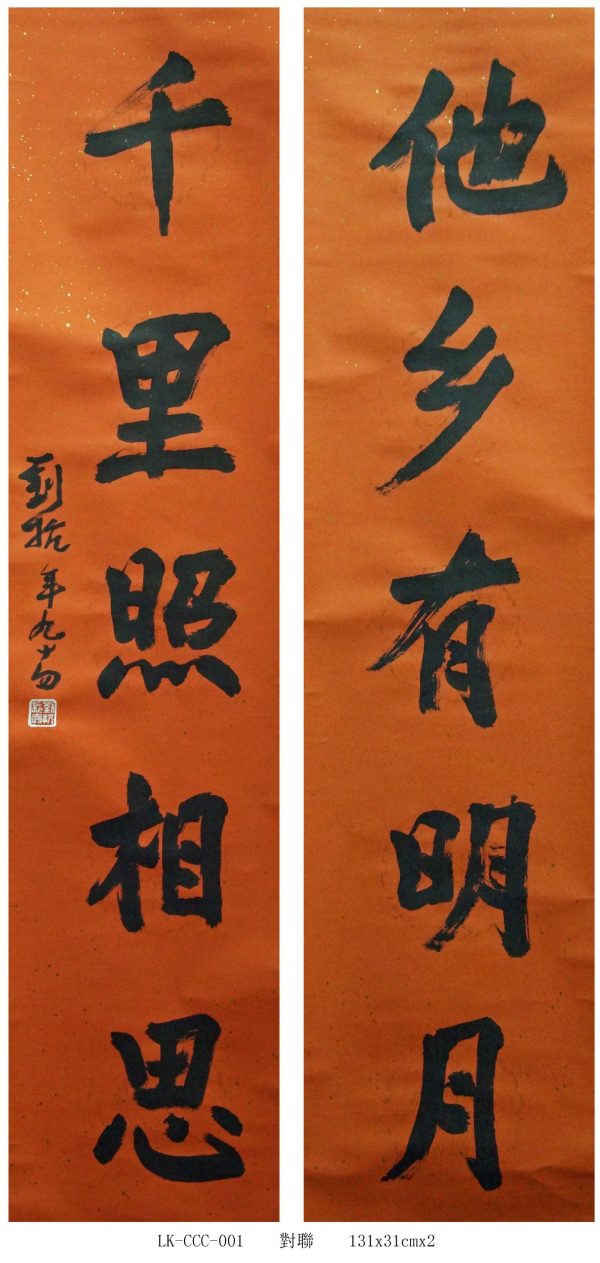 他乡有明月
千里照相思
劉抗 年九十四
LK-CCC-001 對聯 131x31cmx2